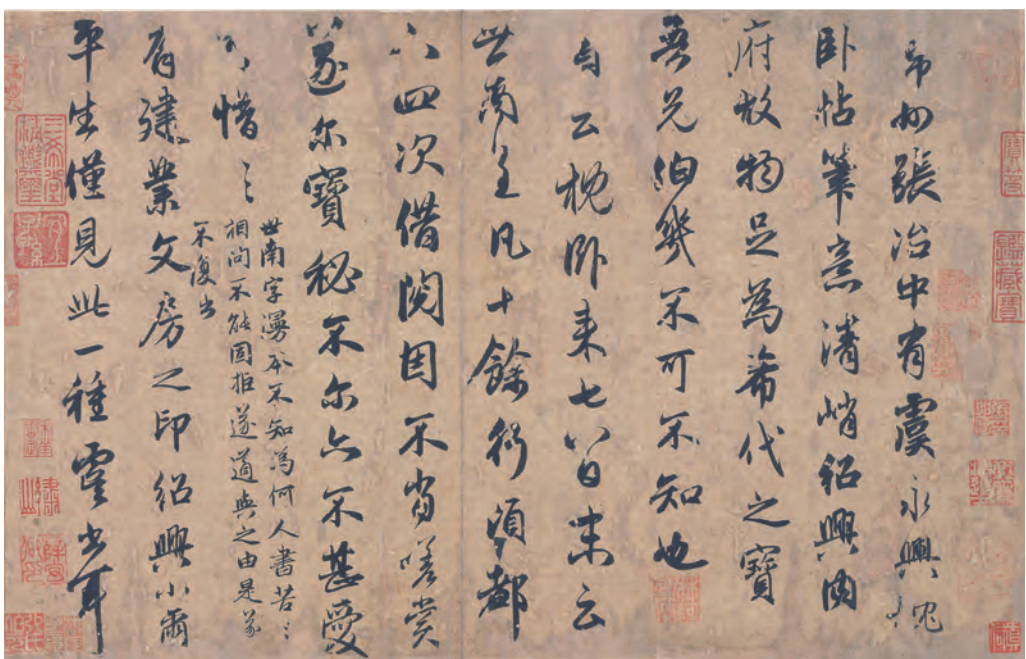 州張治中有虞永興枕
卧帖筆意清峭紹興内
府故物足為希代之寶
無兄伯幾不可不知也
首云枕卧来七八日来云
世南呈凡十餘行頃都
下四次借閱因不肖嗟賞
遂尔寶秘不尔亦不甚愛
可惜〻
世南字漫本不知為何人書苦〻
相問不能固拒遂道與之由是遂
不復出
有建業文房之印紹興小璽
平生僅見此一種虞書耳